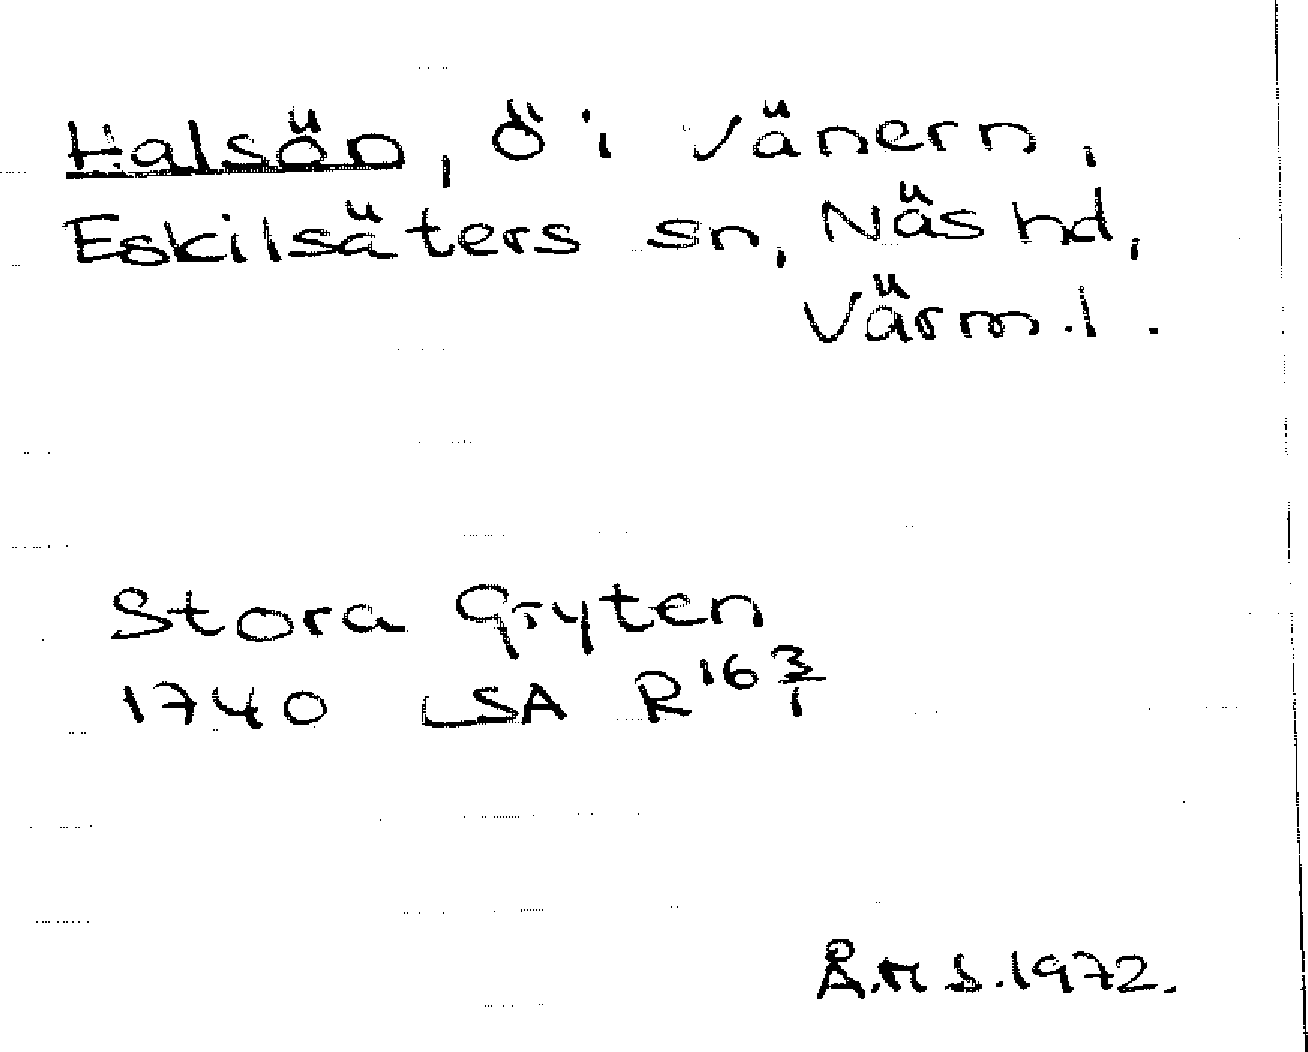 Halsön, Ö i Vänern,
Eskilsäters sn, Näs hd,
Värml.
Stora Gryten
1740 LSA R16 3/1
Å.H S. 1972.